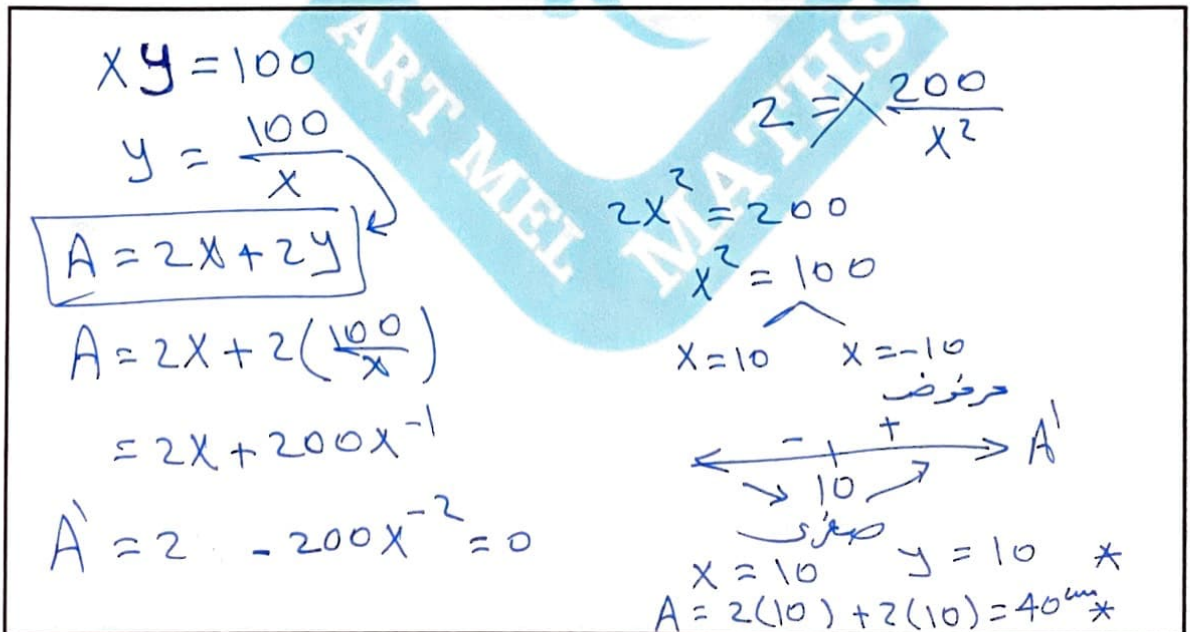 xy = 100
y = 100/x
A = 2x + 2y
A = 2x + 2(100/x)
= 2x + 200x⁻¹
A' = 2 - 200x⁻² = 0
2 = 200/x²
2x² = 200
x² = 100
x = 10 x = -10
مرفوض
- + A'
10
صغرى
x = 10 y = 10 *
A = 2(10) + 2(10) = 40 cm *
ART MEL MATHS